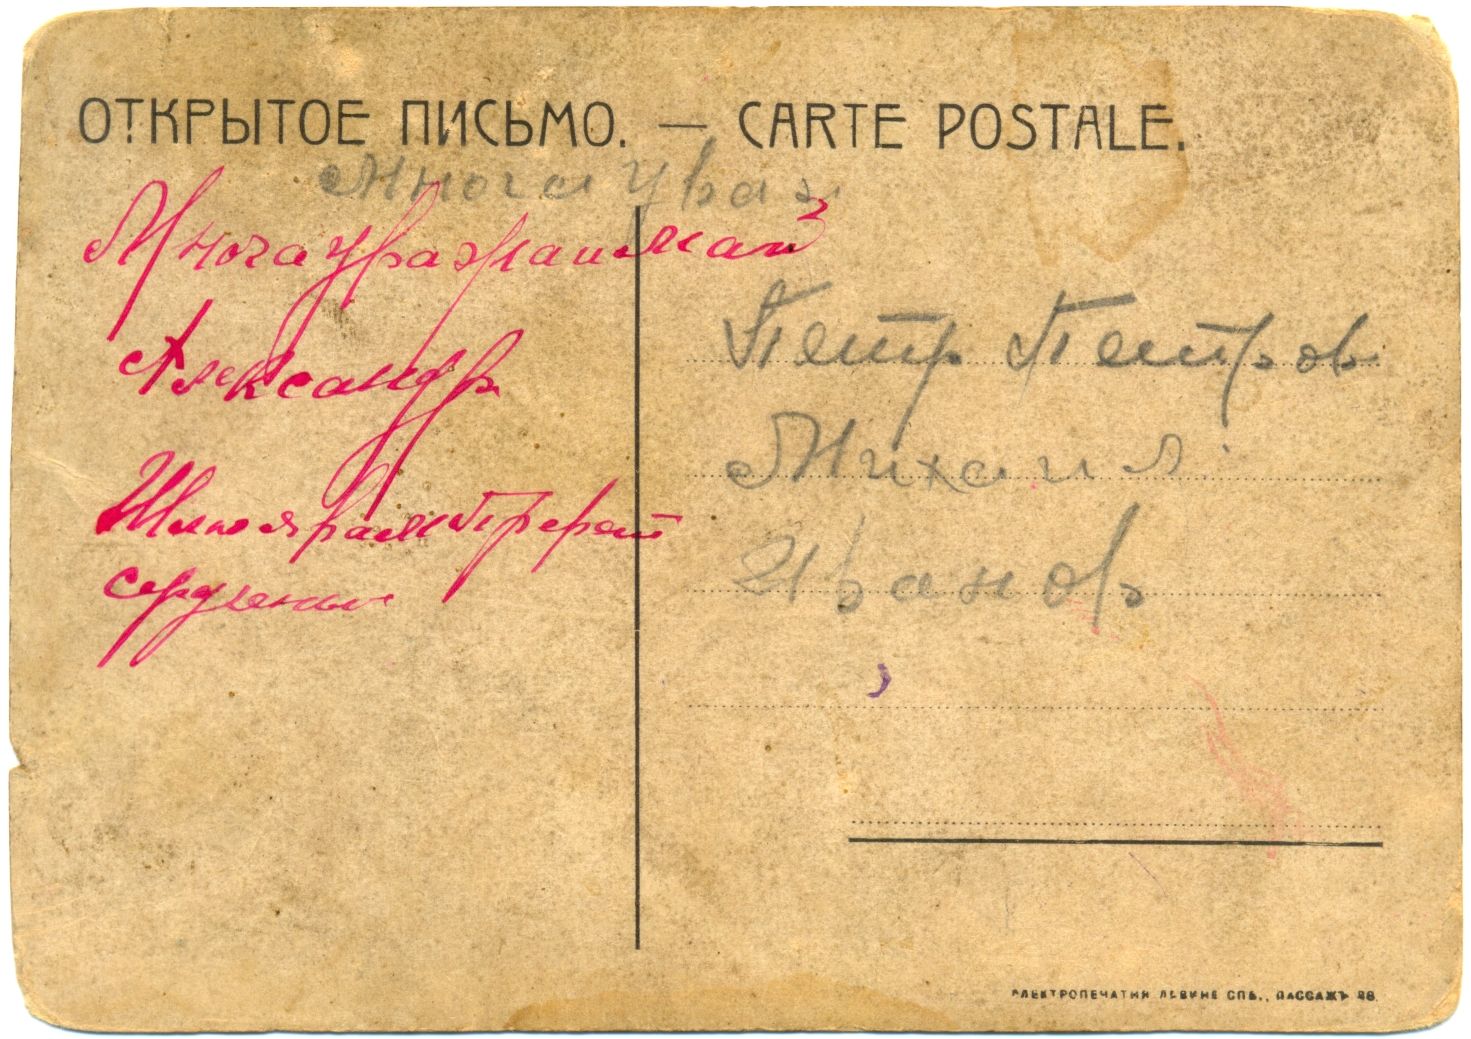 ОТКРЫТОЕ ПИСЬМО. — CARTE POSTALE.
Многауваж
Многауважаимай
Александр
сердечный
Петр Петров
Михаил
Иванов
ЭЛЕКТРОПЕЧАТНЯ ЛЕВИНЕ СПБ., ПАССАЖЪ 48.